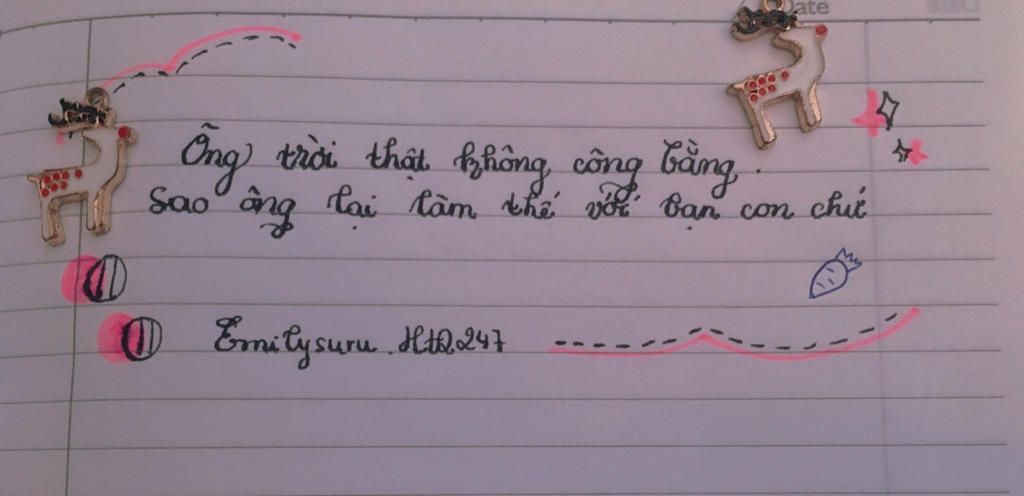 Date
Ông trời thật không công bằng.
Sao ông lại làm thế với bạn con chứ
Emilysuru.HHQ247